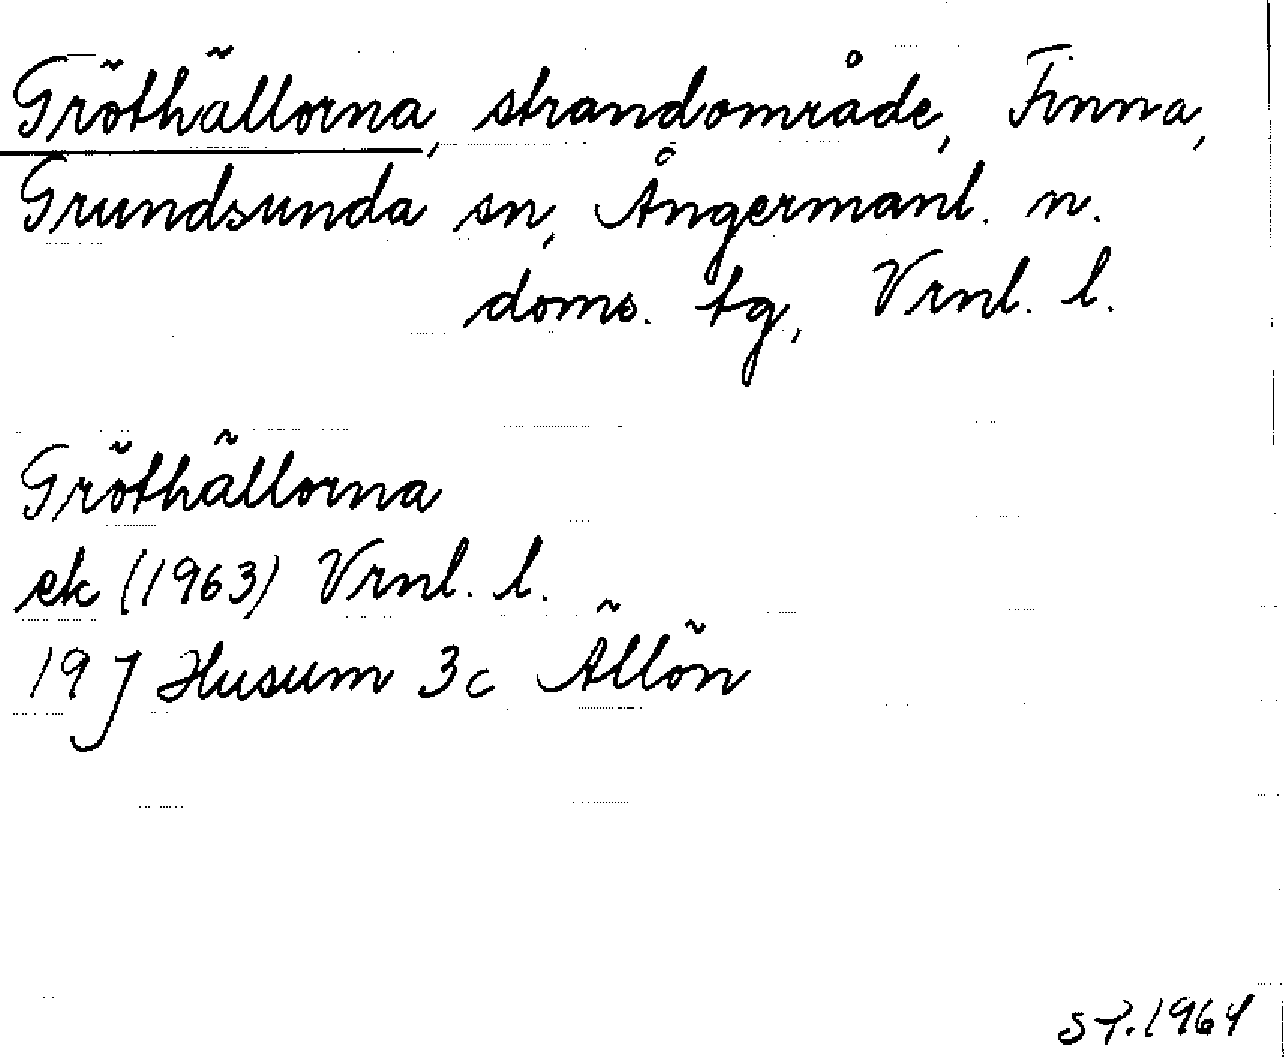 Gröthällorna, strandområde, Finna,
Grundsunda sn, Ångermanl. n.
doms. tg, Vrnl. l.
Gröthällorna
ek (1963) Vrnl. l.
19 J Husum 3c Ällön
ST. 1964